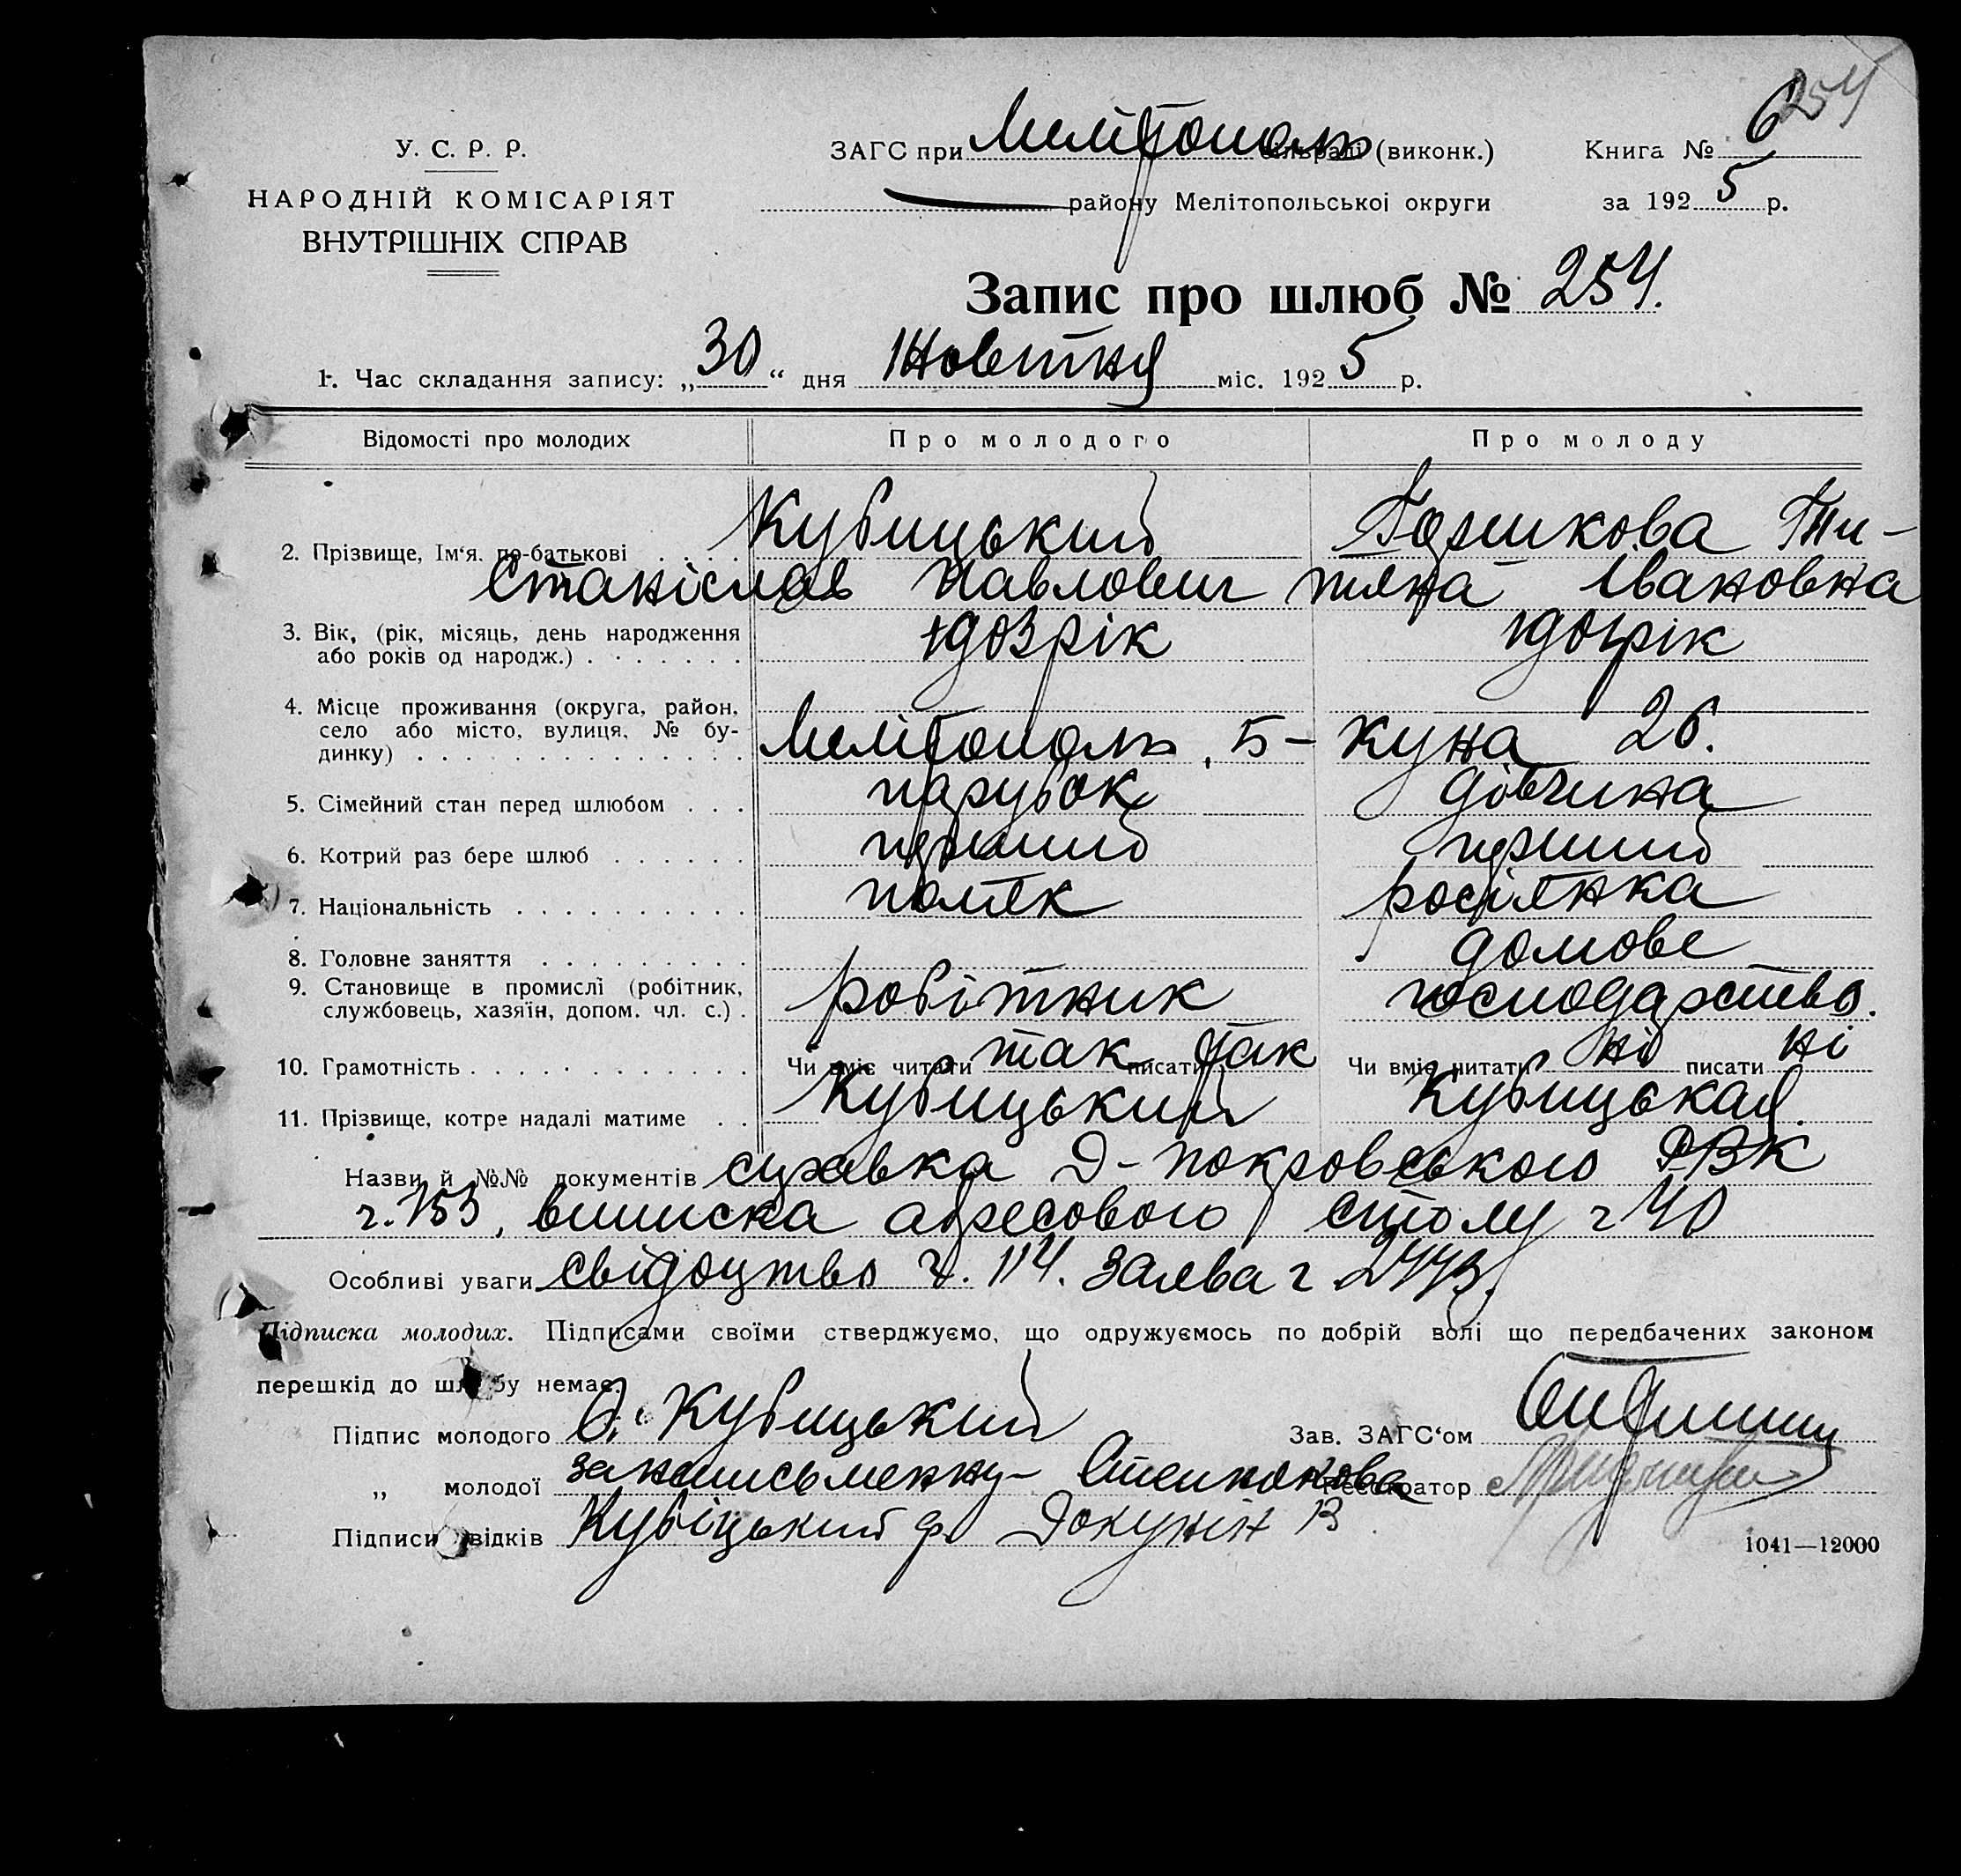 254
У. С. Р. Р.
НАРОДНІЙ КОМІСАРІЯТ
ВНУТРІШНІХ СПРАВ
ЗАГС при Мелітополь сільраді (виконк.)
Книга № 6
району Мелітопольської округи
за 1925 р.
Запис про шлюб № 254.
1. Час складання запису: „30“ дня Жовтня міс. 1925 р.
Відомості про молодих Про молодого Про молоду
2. Прізвище, Ім'я, по-батькові . . . . Кубицький Горшкова Ти-
Станіслав Павлович тяна Івановна
3. Вік, (рік, місяць, день народження
або років од народж.) . . . . . . . 1903 рік рік
4. Місце проживання (округа, район,
село або місто, вулиця, № бу-
динку) . . . . . . . . . . . . . . Мелітополь, Б-куна 26.
5. Сімейний стан перед шлюбом . . . парубок дівчина
6. Котрий раз бере шлюб . . . . . . перший перший
7. Національність . . . . . . . . . . поляк росіянка
8. Головне заняття . . . . . . . . . домове
9. Становище в промислі (робітник,
службовець, хазяїн, допом. чл. с.) . робітник господарство.
10. Грамотність . . . . . . . . . . . . Чи вміє читати так писати так Чи вміє читати ні писати ні
11. Прізвище, котре надалі матиме . . Кубицький Кубицькая.
Назви й №№ документів справка Д-покровського РВК
ч. 153, виписка адресового столу ч 40
Особливі уваги свідоцтво ч. 114. заява ч 2443.
Підписка молодих. Підписами своїми стверджуємо, що одружуємось по добрій волі що передбачених законом
перешкід до шлюбу немає.
Підпис молодого С. Кубицький
Зав. ЗАГС'ом
„ молодої за неписьменну-
Реєстратор
Підписи свідків Кубіцький ф. Докунін В
1041—12000